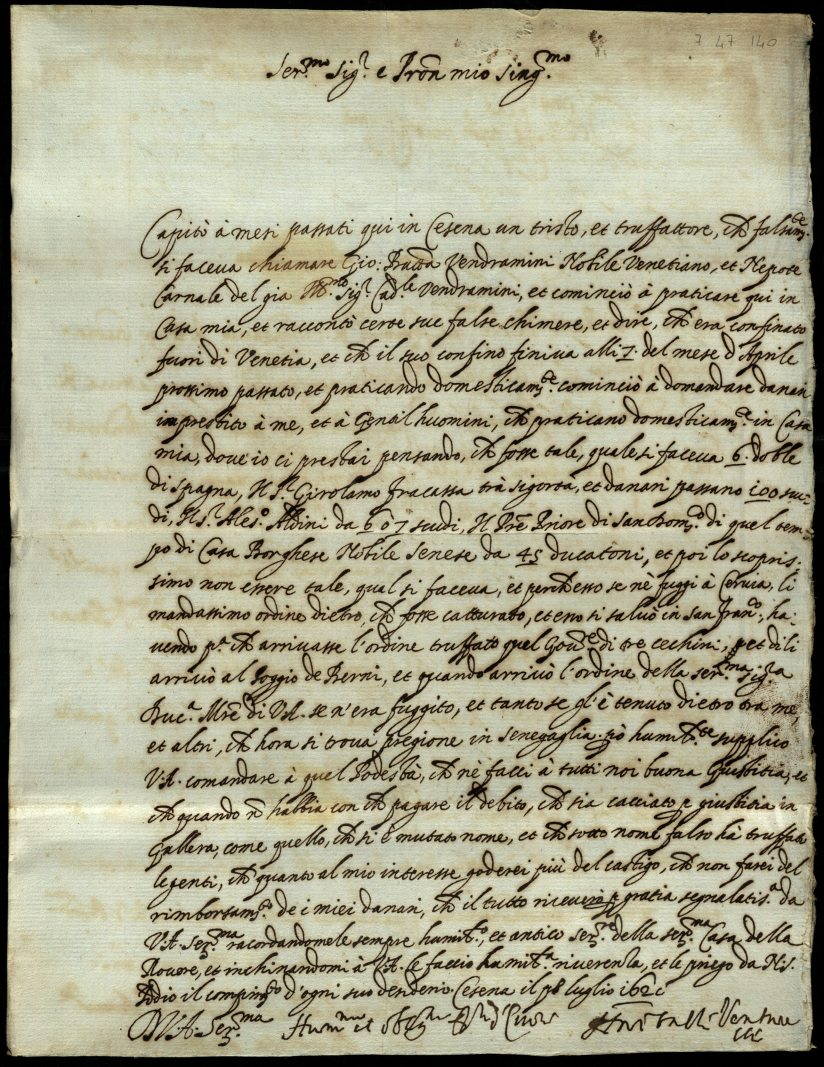 7 47 140
Ser.mo Sig.r e Pron mio sing.mo
Capitò à mesi passati qui in Cesena un tristo, et truffattore, ch falsam.te
si faceva chiamare Gio: Batta Vendramini Nobile Venetiano, et Nepote
Carnale del già Ill.mo Sig.r Cad.le Vendramini, et cominciò à praticare qui in
Casa mia, et raccontò certe sue false chimere, et dire, ch era confinato
fuori di Venetia, et ch il suo confino finiva alli 7. del mese d'Aprile
prossimo passato, et praticando domesticam.te cominciò à domandare danari
imprestito à me, et à Gentil'huomini, ch praticano domesticam.te in Casa
mia, dove io ci prestai pensando, ch fosse tale, quale si faceva 6. doble
di Spagna, Il S.r Girolamo Fracassa trà sigortà, et danari passano 100 scu-
di, Il S.r Ales.o Albini da 6 ò 7 scudi, Il Pre Priore di San Dom.co di quel tem-
po di Casa Borghese Nobile Senese da 45 ducatoni, et poi lo scopris-
simo non essere tale, qual si faceva, et perch esso se nè fuggì à Cervia, li
mandassimo ordine dietro, ch fosse catturato, et esso si salvò in San Fran.co, ha-
vendo p.a ch arrivasse l'ordine truffato quel Gov.re di tre cechini, et di li
arrivò al Poggio de Berni, et quando arrivò l'ordine della Ser.ma Sig.ra
Duc.a Mre di V.A. se n'era fuggito, et tanto se gl'è tenuto dietro tra me,
et altri, ch hora si trova pregione in Senegaglia. Però humil.te supplico
V.A. comandare à quel Podestà, ch nè facci à tutti noi buona Giustitia, et
ch quando nō habbia con ch pagare il debito, ch sia cacciato p giustitia in
Gallera, come quello, ch si è mutato nome, et ch sotto nome falso hà truffato
le genti, ch quanto al mio interesse goderei più del castigo, ch non farei del
rimborsam.to de i miei danari, ch il tutto riceverò p gratia segnalatis.a da
V.A. Ser.ma racordandomele sempre humil.o, et antico ser.re della ser.ma Casa della
Rovere, et inchinandomi à V.A. le faccio humil.a riverenza, et le priego da N.S.
Iddio il compim.to d'ogni suo desiderio. Cesena il p° 8 luglio 162
D.V.A. Ser.ma Hum.mo et oblig.mo Ser.re
Venture